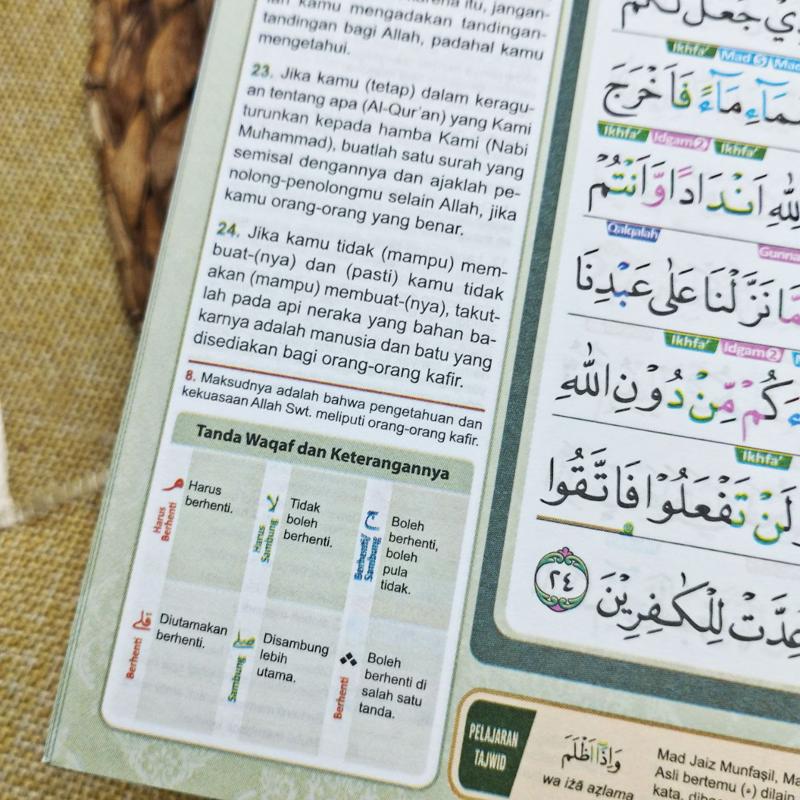 kamu mengadakan tandingan-
tandingan bagi Allah, padahal kamu
mengetahui.
23. Jika kamu (tetap) dalam keragu-
an tentang apa (Al-Qur’an) yang Kami
turunkan kepada hamba Kami (Nabi
Muhammad), buatlah satu surah yang
semisal dengannya dan ajaklah pe-
nolong-penolongmu selain Allah, jika
kamu orang-orang yang benar.
24. Jika kamu tidak (mampu) mem-
buat-(nya) dan (pasti) kamu tidak
akan (mampu) membuat-(nya), takut-
lah pada api neraka yang bahan ba-
karnya adalah manusia dan batu yang
disediakan bagi orang-orang kafir.
8. Maksudnya adalah bahwa pengetahuan dan
kekuasaan Allah Swt. meliputi orang-orang kafir.
Tanda Waqaf dan Keterangannya
مـ
Harus
Berhenti
Harus
berhenti.
لا
Harus
Sambung
Tidak
boleh
berhenti.
ج
Berhenti/
Sambung
Boleh
berhenti,
boleh
pula
tidak.
قلى
Berhenti
Diutamakan
berhenti.
صلى
Sambung
Disambung
lebih
utama.
Berhenti
Boleh
berhenti di
salah satu
tanda.
جَعَلَ لَكُمُ
Ikhfa’ Mad 5
مَاۤءً فَاَخْرَجَ
Ikhfa’ Idgam 2 Ikhfa’
اَنْدَادًا وَّاَنْتُمْ
Qalqalah Gunna
نَزَّلْنَا عَلٰى عَبْدِنَا
Ikhfa’ Idgam 2
مِّنْ دُوْنِ اللّٰهِ
Ikhfa’
لَنْ تَفْعَلُوْا فَاتَّقُوا
لِلْكٰفِرِيْنَ ٢٤
PELAJARAN
TAJWID
وَاِذَآ اَظْلَمَ
wa iżā aẓlama
Mad Jaiz Munfaṣil,
Asli bertemu (ء)
kata,